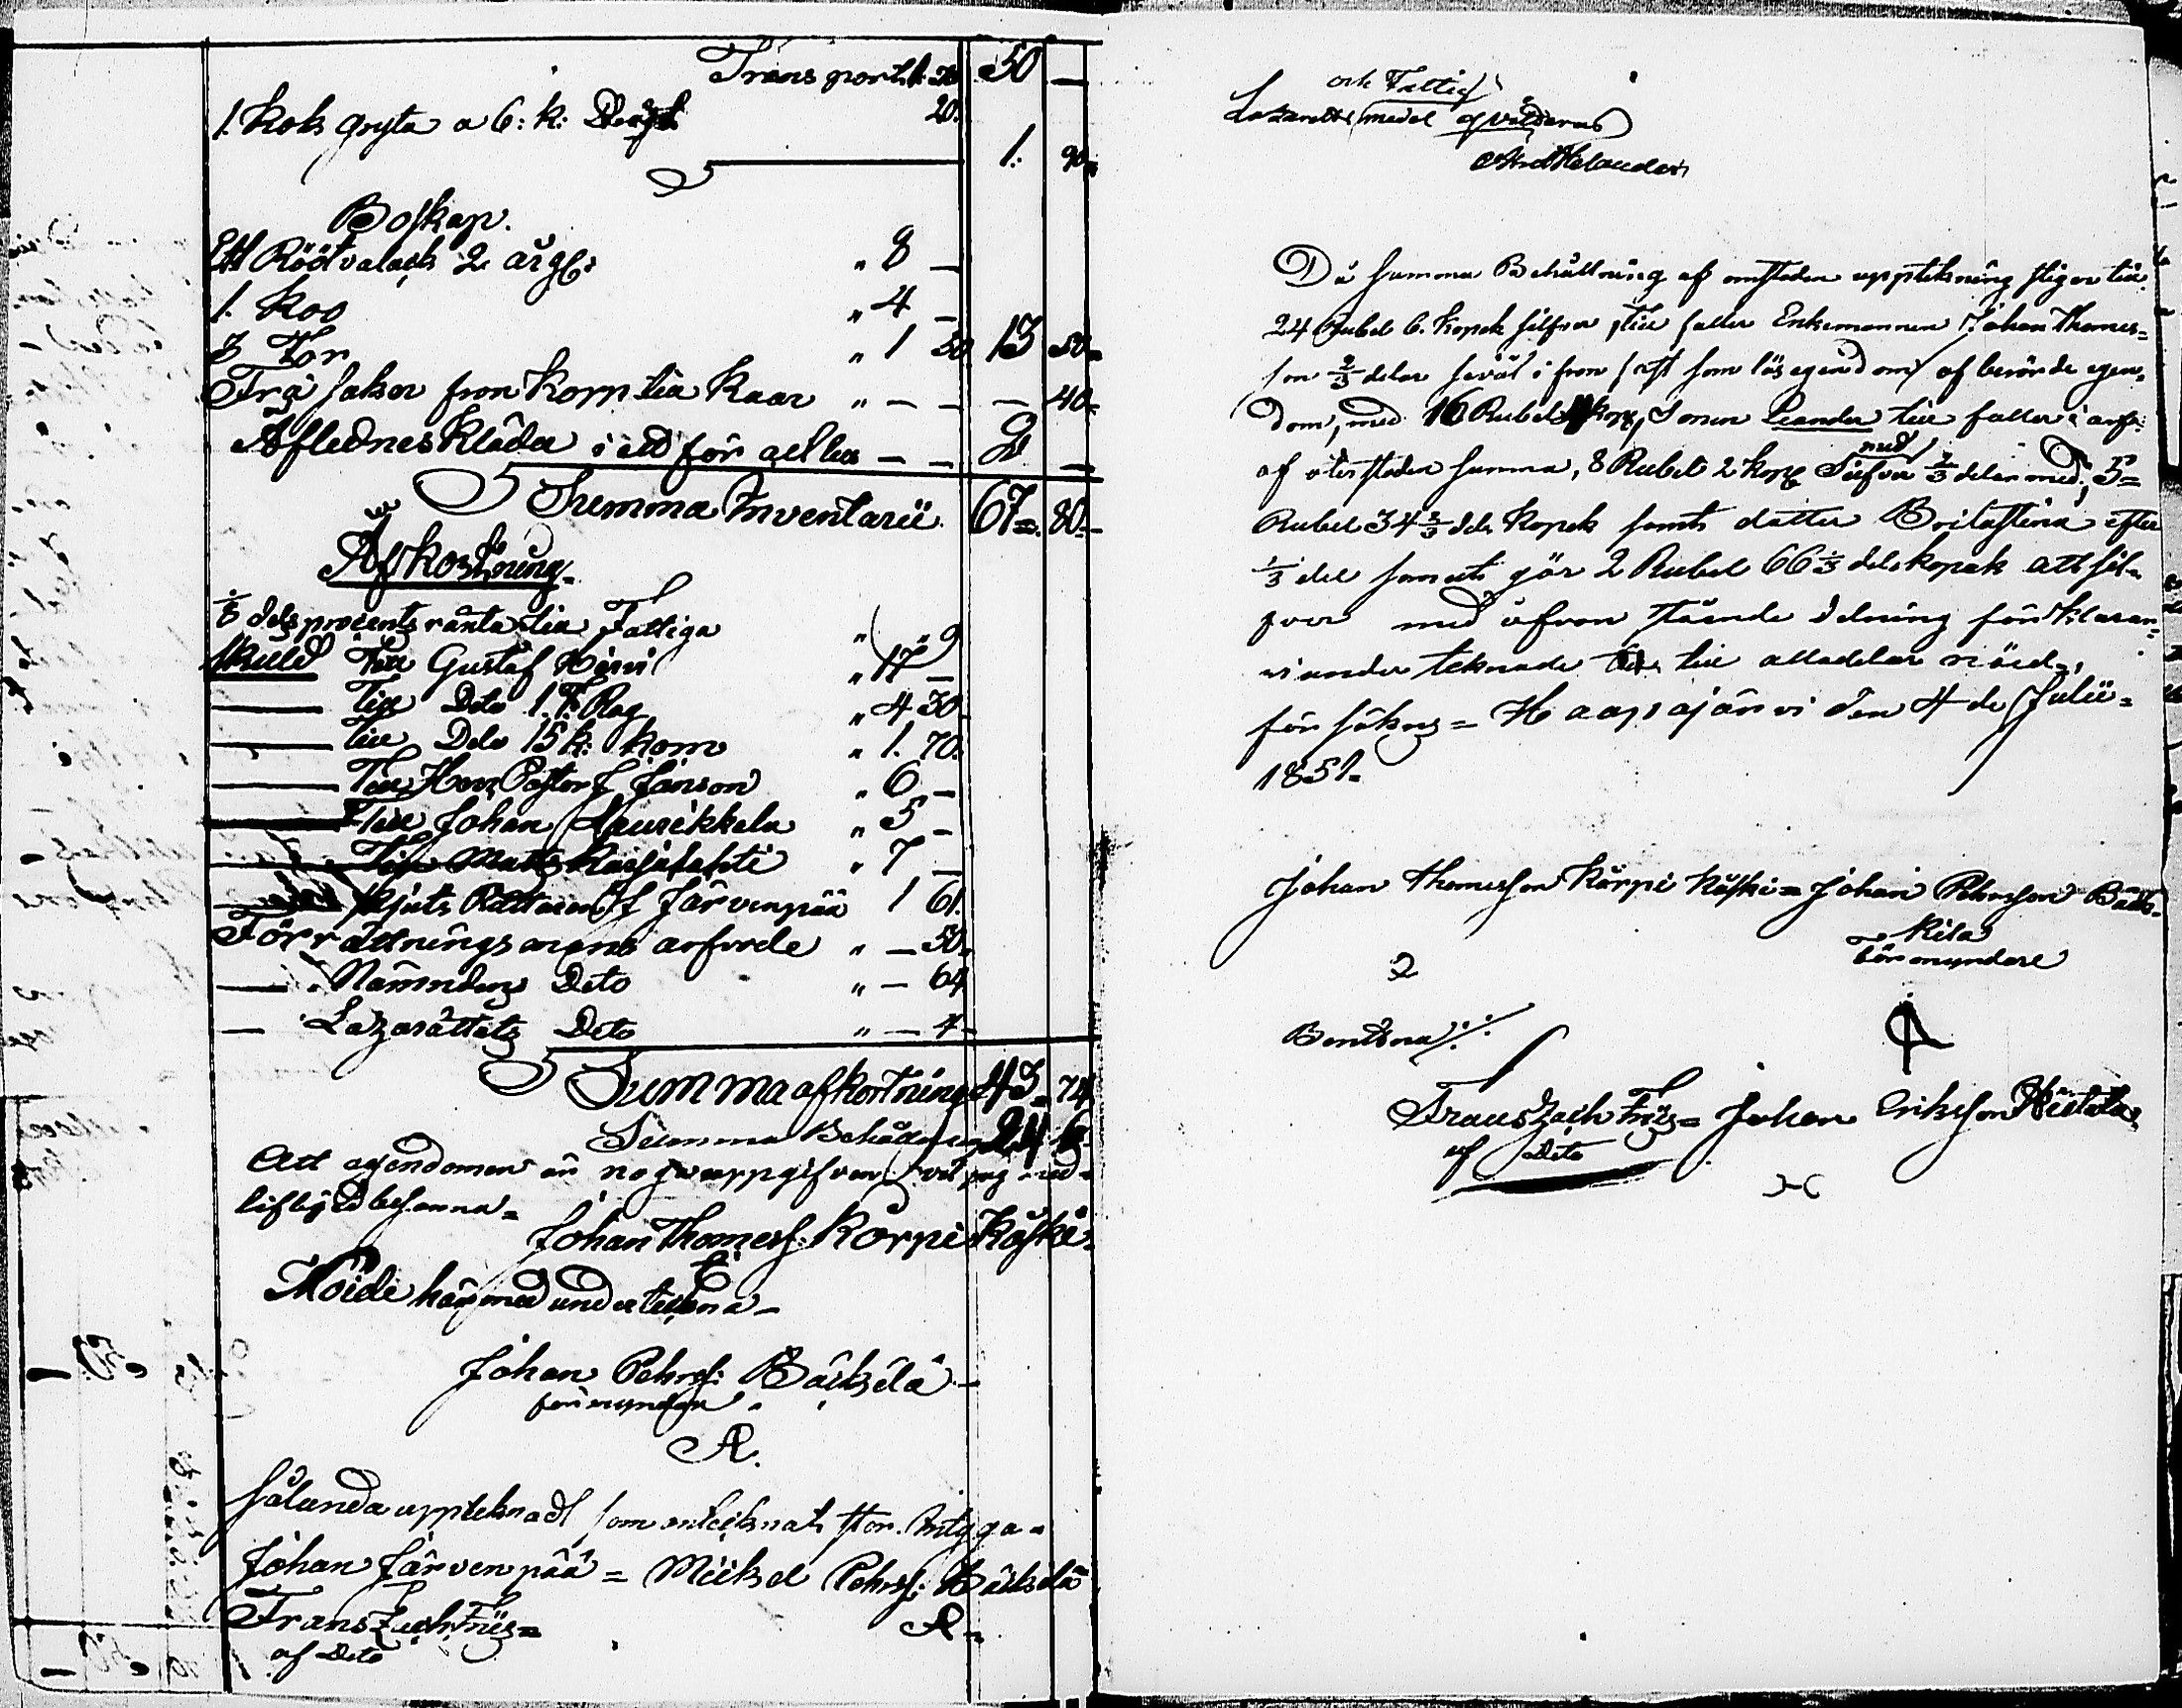 Transport 50 —
1. Koks gryta a 6: k: 20.
1: 90
Boskap.
Ett Rööt valack 2 årg: " 8 —
1. Koo " 4 —
3 För " 1 50 13 50
Trä saker fron Korp till Kaar " — — — 40
Aflednes Kläder i ett för allt — — 2 —
Summa Inventarii 67 80
Afkortning
⅛ dels procents ränta till Fattiga " " 9
Skuld Till Gustaf Hirvi " 17 —
— Till Deto 1. T. Rog " 4 30
— Till Deto 15 k: korn " 1. 70.
— Till Herr Pastor J Janson " 6 —
— Till Johan Laurikkala " 5 —
— Till Matts " 7 —
— Skjuts Rättaren J Järvenpää 1 61.
Förrättnings manns arfvode " — 50
— Nämndens Deto " — 64
— Lazarättets Deto " — 4
Summa afkortning 43 74
Summa Behållning 24 6
Att egendomen är noga uppgifven vil jag med
liflig Ed besanna =
Johan Thomess: Korpi Koski
Nöide härmed underteckna —
Johan Pehrs: Bäckilä —
förmyndare
Sålunda upptecknadt som antecknat står. Intyga =
Johan Järvenpää = Mickel Pehrs: Bäckilä
Frans Zach: Friis =
af Deto
och Fattig
Lazaretts medel qvitteras
And Helander
Då summa Behållning af omstående uppteckning stiger till
24 Rubel 6. Kopek silfver, Till faller Enkemannen Johan Thomes=
son ⅔ delar såväl i fron fast som lös egendom af berörde egen=
dom, med 16 Rubel 4 kop, Sonen Leander till faller i arf
af återstoden summa, 8 Rubel 2 kop Silfver ⅔ delar med, 5=
med
Rubel 34⅔ dels Kopek samt dotter Brita Stina efter
⅓ del som ut gör 2 Rubel 66⅓ dels kopek allt sil=
fver med åfvan stående delning förklaran
vi under teknade till alladelar nöid=,
försäkras = Haapajärvi den 4 de Julii =
1851.
Johan Thomesson Korpi Koski = Johan Pehrsson Bäck=
kila
förmyndare
2
Bevittna ./.
Frans Zach Friis = Johan Eriksson Hietala
af Deto